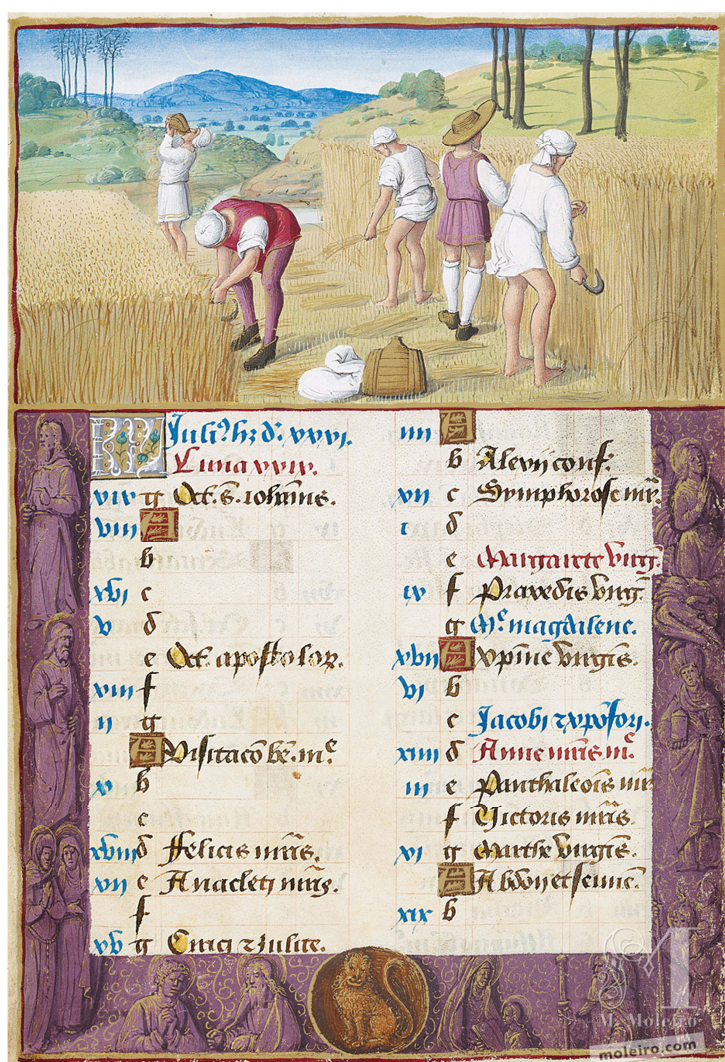 KL Juli9 hz d. xxxi.
Luna xxix.
xix g Oct. S. iohānis.
viii A
b
xvi c
v d
e Oct. apostolor.
xiii f
ii g
A Visitacō be. me
x b
c
xviii d Felicis mris.
vii e Anacleti mris.
f
xv g Cirici z iulite.
iiii A
b Alexii conf.
xii c Symphorose mr.
i d
e Margarete virg.
ix f Praxedis virg.
g Me magdalene.
xvii A Xpine virgis.
vi b
c Jacobi z xpofori.
xiiii d Anne mris me
iii e Panthaleois mr
f Victoris mris.
xi g Marthe virgis.
A Abdon et senne.
xix b
M
M. Moleiro
moleiro.com